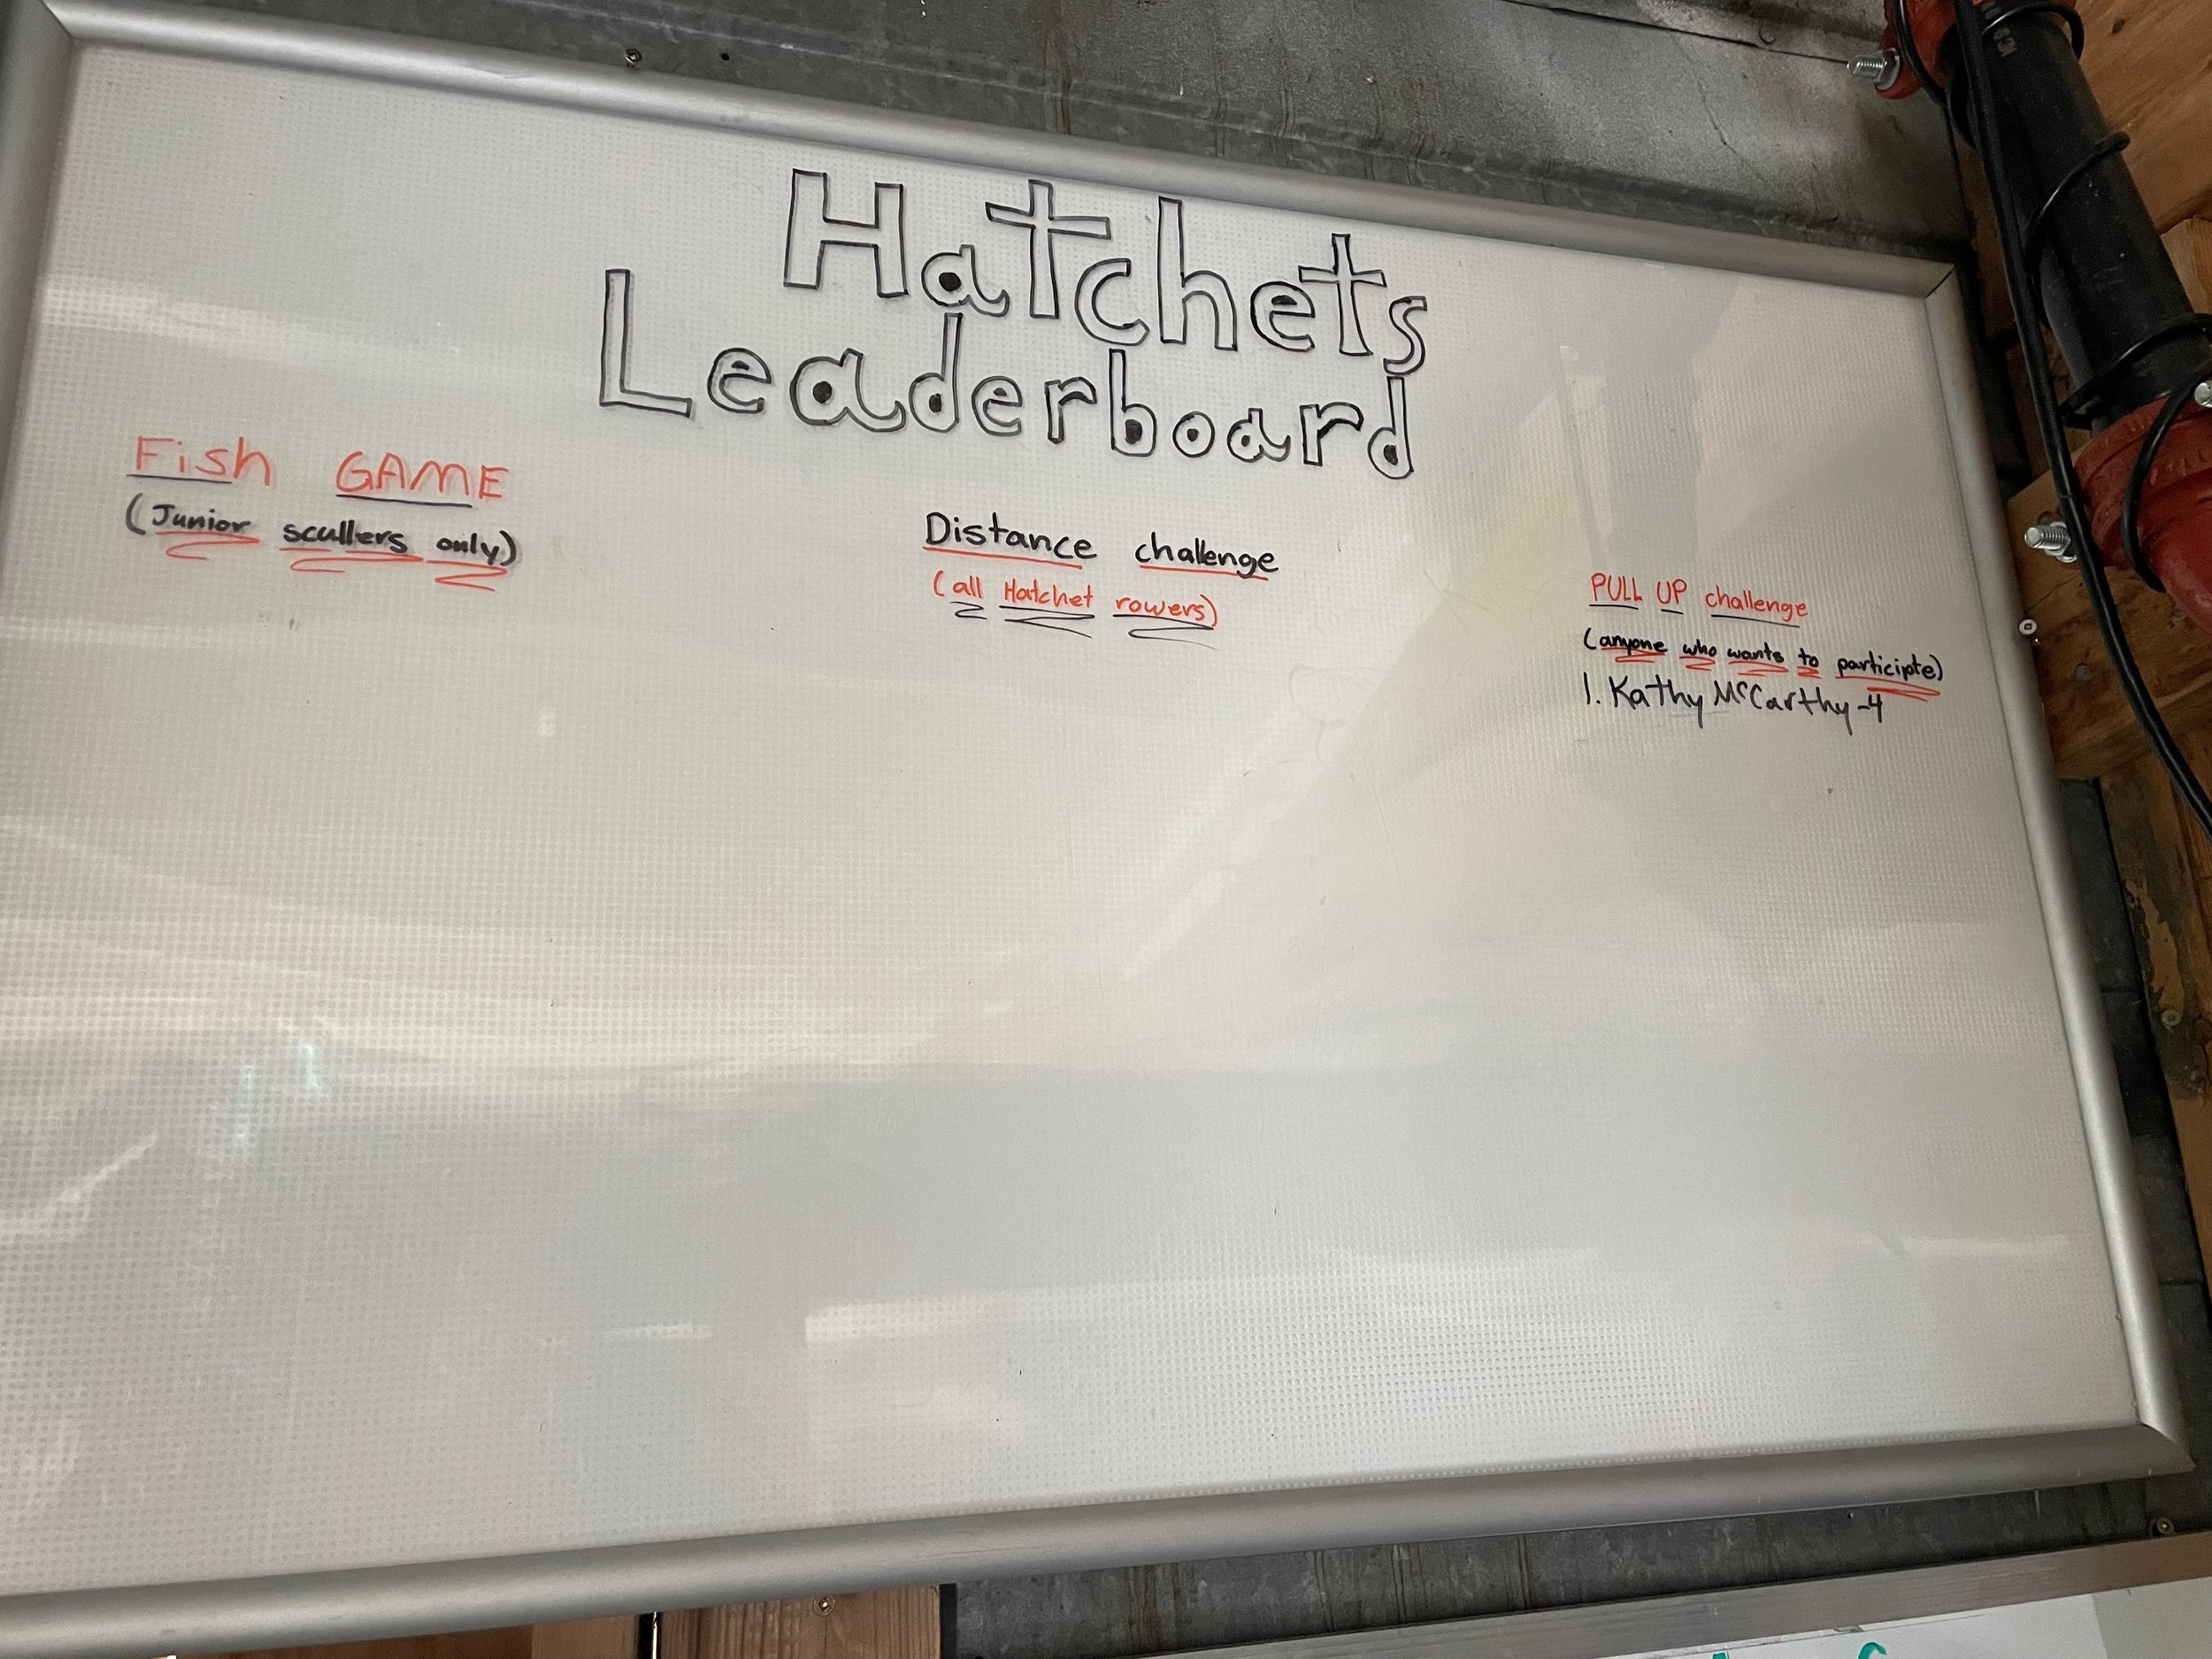 Hatchets
Leaderboard
Fish GAME
(Junior scullers only)
Distance challenge
(all Hatchet rowers)
PULL UP challenge
(anyone who wants to participte)
1. Kathy McCarthy-4